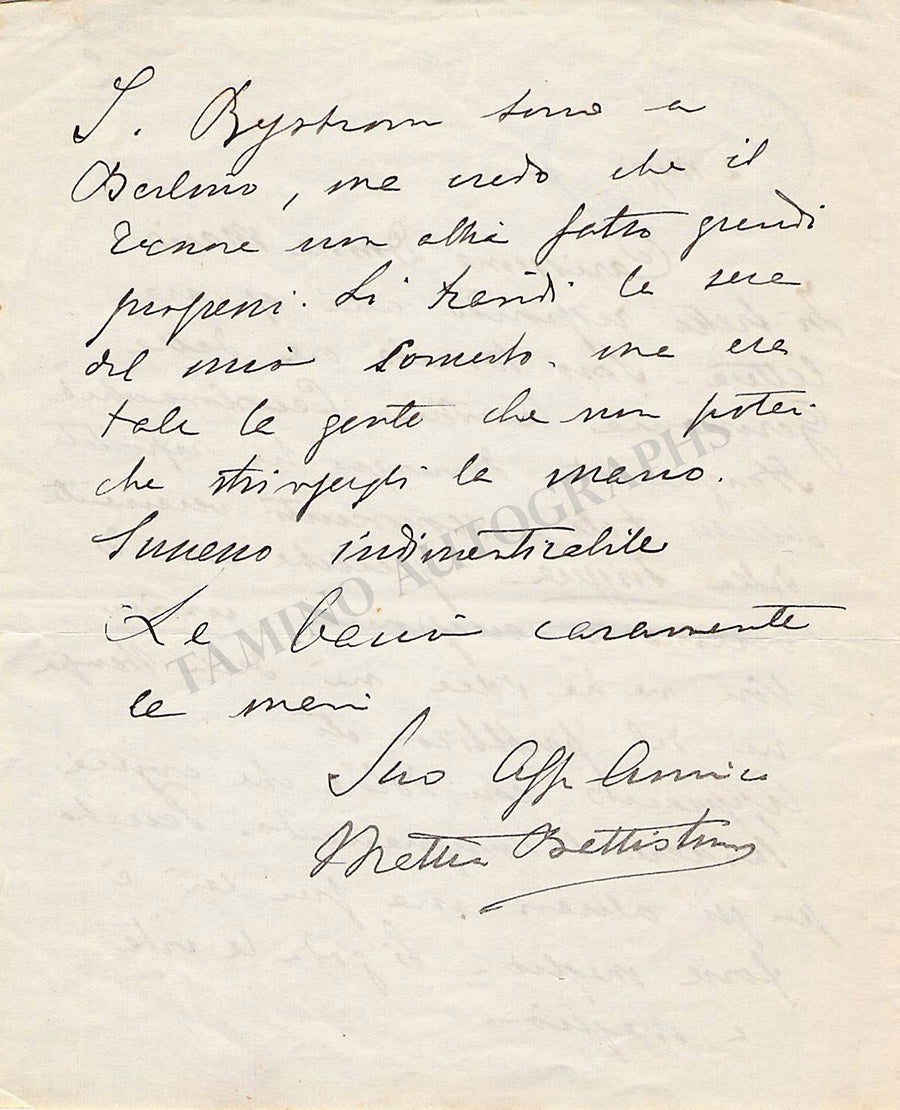 I. Bystrom sono a
Berlino, ma credo che il
tenore non abbia fatto grandi
progressi. Li travidi la sera
del mio Concerto. ma era
tale la gente che non potei
che stringergli la mano.
Successo indimenticabile
Le bacio caramente
le mani
Suo Aff. Amico
Mattia Battistini
TAMINO AUTOGRAPHS